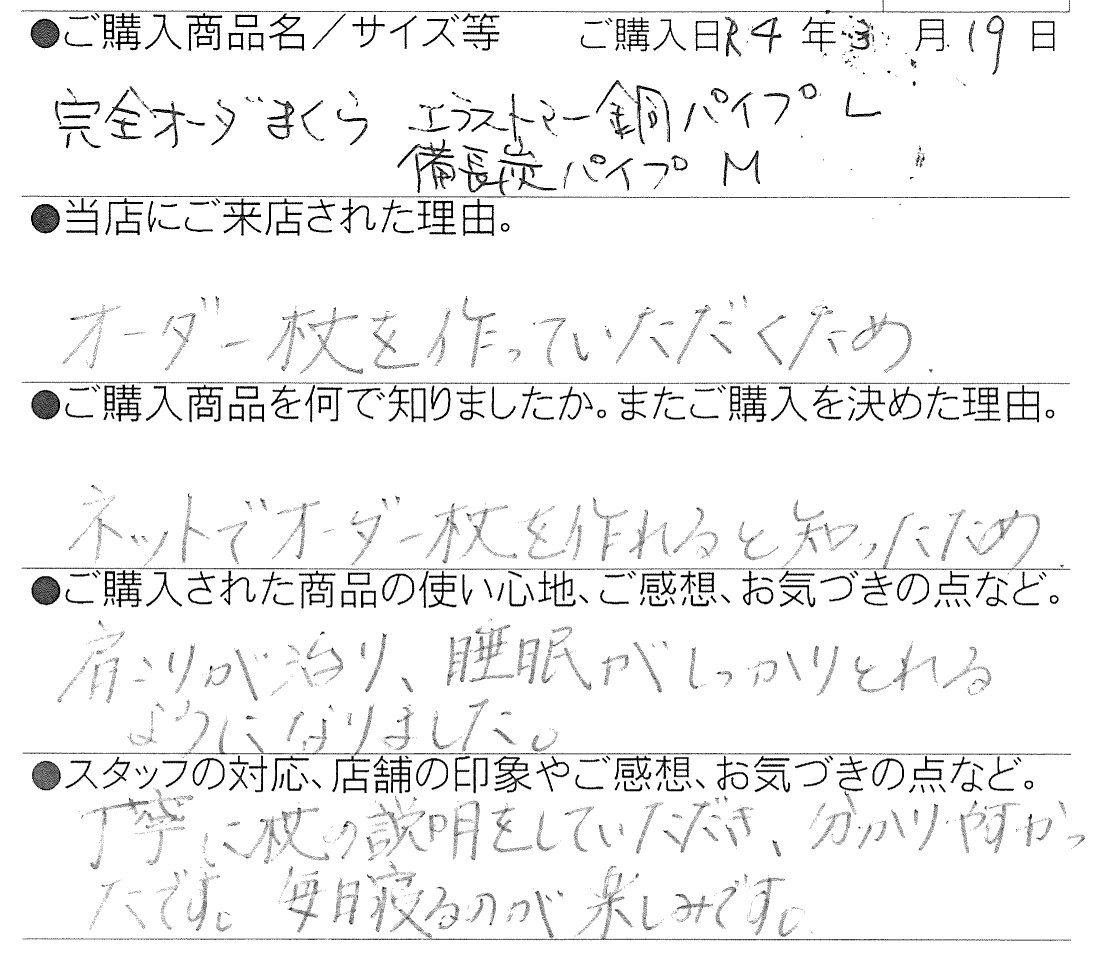 ●ご購入商品名／サイズ等　ご購入日R4年3月19日
完全オーダまくら　エラストマー銅パイプ L
備長炭パイプ M
●当店にご来店された理由。
オーダー枕を作っていただくため.
●ご購入商品を何で知りましたか。またご購入を決めた理由。
ネットでオーダー枕を作れると知ったため.
●ご購入された商品の使い心地、ご感想、お気づきの点など。
肩こりが治り、睡眠がしっかりとれる
ようになりました。
●スタッフの対応、店舗の印象やご感想、お気づきの点など。
丁寧に枕の説明をしていただき、分かりやすかっ
たです。毎日寝るのが楽しみです。